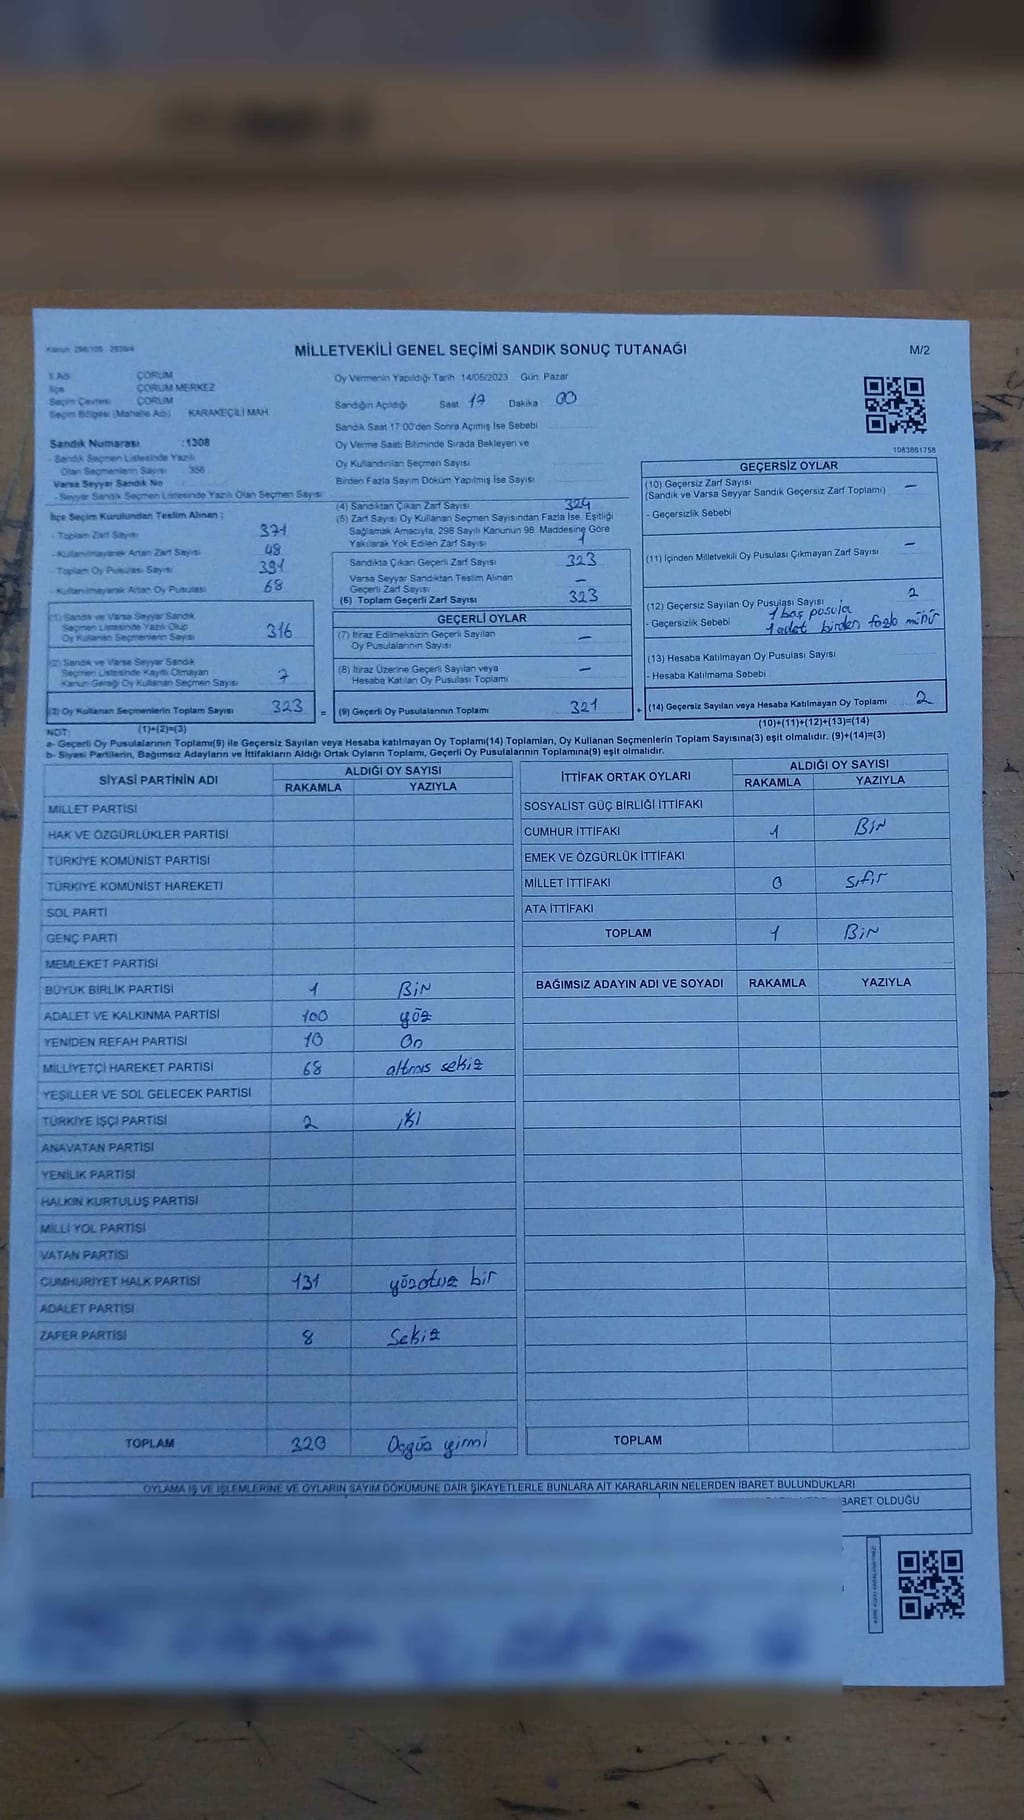 Kanun: 298/105 2839/4
MİLLETVEKİLİ GENEL SEÇİMİ SANDIK SONUÇ TUTANAĞI
M/2
İl Adı ÇORUM
İlçe ÇORUM MERKEZ
Seçim Çevresi ÇORUM
Seçim Bölgesi (Mahalle Adı) KARAKEÇİLİ MAH
Sandık Numarası :1308
- Sandık Seçmen Listesinde Yazılı
Olan Seçmenlerin Sayısı 356
Varsa Seyyar Sandık No
- Seyyar Sandık Seçmen Listesinde Yazılı Olan Seçmen Sayısı
Oy Vermenin Yapıldığı Tarih 14/05/2023 Gün: Pazar
Sandığın Açıldığı Saat 17 Dakika 00
Sandık Saat 17:00'den Sonra Açımış İse Sebebi
Oy Verme Saati Bitiminde Sırada Bekleyen ve
Oy Kullandırılan Seçmen Sayısı
Birden Fazla Sayım Döküm Yapılmış İse Sayısı
1083801758
İlçe Seçim Kurulundan Teslim Alınan :
- Toplam Zarf Sayısı 371
- Kullanılmayarak Artan Zarf Sayısı 48
Toplam Oy Pusulası Sayısı 391
- Kullanılmayarak Artan Oy Pusulası 68
(1) Sandık ve Varsa Seyyar Sandık
Seçmen Listesinde Yazılı Olup
Oy Kullanan Seçmenlerin Sayısı 316
(2) Sandık ve Varsa Seyyar Sandık
Seçmen Listesinde Kayıtlı Olmayan
Kanun Gereği Oy Kullanan Seçmen Sayısı 7
(3) Oy Kullanan Seçmenlerin Toplam Sayısı 323 =
(1)+(2)=(3)
(4) Sandıktan Çıkan Zarf Sayısı 324
(5) Zarf Sayısı Oy Kullanan Seçmen Sayısından Fazla İse, Eşitliği
Sağlamak Amacıyla, 298 Sayılı Kanunun 98. Maddesine Göre
Yakılarak Yok Edilen Zarf Sayısı 1
Sandıkta Çıkan Geçerli Zarf Sayısı 323
Varsa Seyyar Sandıktan Teslim Alınan
Geçerli Zarf Sayısı —
(6) Toplam Geçerli Zarf Sayısı 323
GEÇERLİ OYLAR
(7) İtiraz Edilmeksizin Geçerli Sayılan
Oy Pusulalarının Sayısı —
(8) İtiraz Üzerine Geçerli Sayılan veya
Hesaba Katılan Oy Pusulası Toplamı —
(9) Geçerli Oy Pusulalarının Toplamı 321 +
GEÇERSİZ OYLAR
(10) Geçersiz Zarf Sayısı —
(Sandık ve Varsa Seyyar Sandık Geçersiz Zarf Toplamı)
- Geçersizlik Sebebi
(11) İçinden Milletvekili Oy Pusulası Çıkmayan Zarf Sayısı —
(12) Geçersiz Sayılan Oy Pusulası Sayısı 2
- Geçersizlik Sebebi 1 boş pusula
1 adet birden fazla mühür
(13) Hesaba Katılmayan Oy Pusulası Sayısı
- Hesaba Katılmama Sebebi
(14) Geçersiz Sayılan veya Hesaba Katılmayan Oy Toplamı 2
(10)+(11)+(12)+(13)=(14)
NOT:
a- Geçerli Oy Pusulalarının Toplamı(9) ile Geçersiz Sayılan veya Hesaba katılmayan Oy Toplamı(14) Toplamları, Oy Kullanan Seçmenlerin Toplam Sayısına(3) eşit olmalıdır. (9)+(14)=(3)
b- Siyasi Partilerin, Bağımsız Adayların ve İttifakların Aldığı Ortak Oyların Toplamı, Geçerli Oy Pusulalarının Toplamına(9) eşit olmalıdır.
SİYASİ PARTİNİN ADI ALDIĞI OY SAYISI
RAKAMLA YAZIYLA
MİLLET PARTİSİ
HAK VE ÖZGÜRLÜKLER PARTİSİ
TÜRKİYE KOMÜNİST PARTİSİ
TÜRKİYE KOMÜNİST HAREKETİ
SOL PARTİ
GENÇ PARTİ
MEMLEKET PARTİSİ
BÜYÜK BİRLİK PARTİSİ 1 BİR
ADALET VE KALKINMA PARTİSİ 100 yüz
YENİDEN REFAH PARTİSİ 10 On
MİLLİYETÇİ HAREKET PARTİSİ 68 altmıs sekiz
YEŞİLLER VE SOL GELECEK PARTİSİ
TÜRKİYE İŞÇİ PARTİSİ 2 iki
ANAVATAN PARTİSİ
YENİLİK PARTİSİ
HALKIN KURTULUŞ PARTİSİ
MİLLİ YOL PARTİSİ
VATAN PARTİSİ
CUMHURİYET HALK PARTİSİ 131 yüzotuz bir
ADALET PARTİSİ
ZAFER PARTİSİ 8 Sekiz
TOPLAM 320 Üçyüz yirmi
İTTİFAK ORTAK OYLARI ALDIĞI OY SAYISI
RAKAMLA YAZIYLA
SOSYALİST GÜÇ BİRLİĞİ İTTİFAKI
CUMHUR İTTİFAKI 1 BİR
EMEK VE ÖZGÜRLÜK İTTİFAKI
MİLLET İTTİFAKI 0 sıfır
ATA İTTİFAKI
TOPLAM 1 BİR
BAĞIMSIZ ADAYIN ADI VE SOYADI RAKAMLA YAZIYLA
TOPLAM
OYLAMA İŞ VE İŞLEMLERİNE VE OYLARIN SAYIM DÖKÜMÜNE DAİR ŞİKAYETLERLE BUNLARA AİT KARARLARIN NELERDEN İBARET BULUNDUKLARI
İBARET OLDUĞU